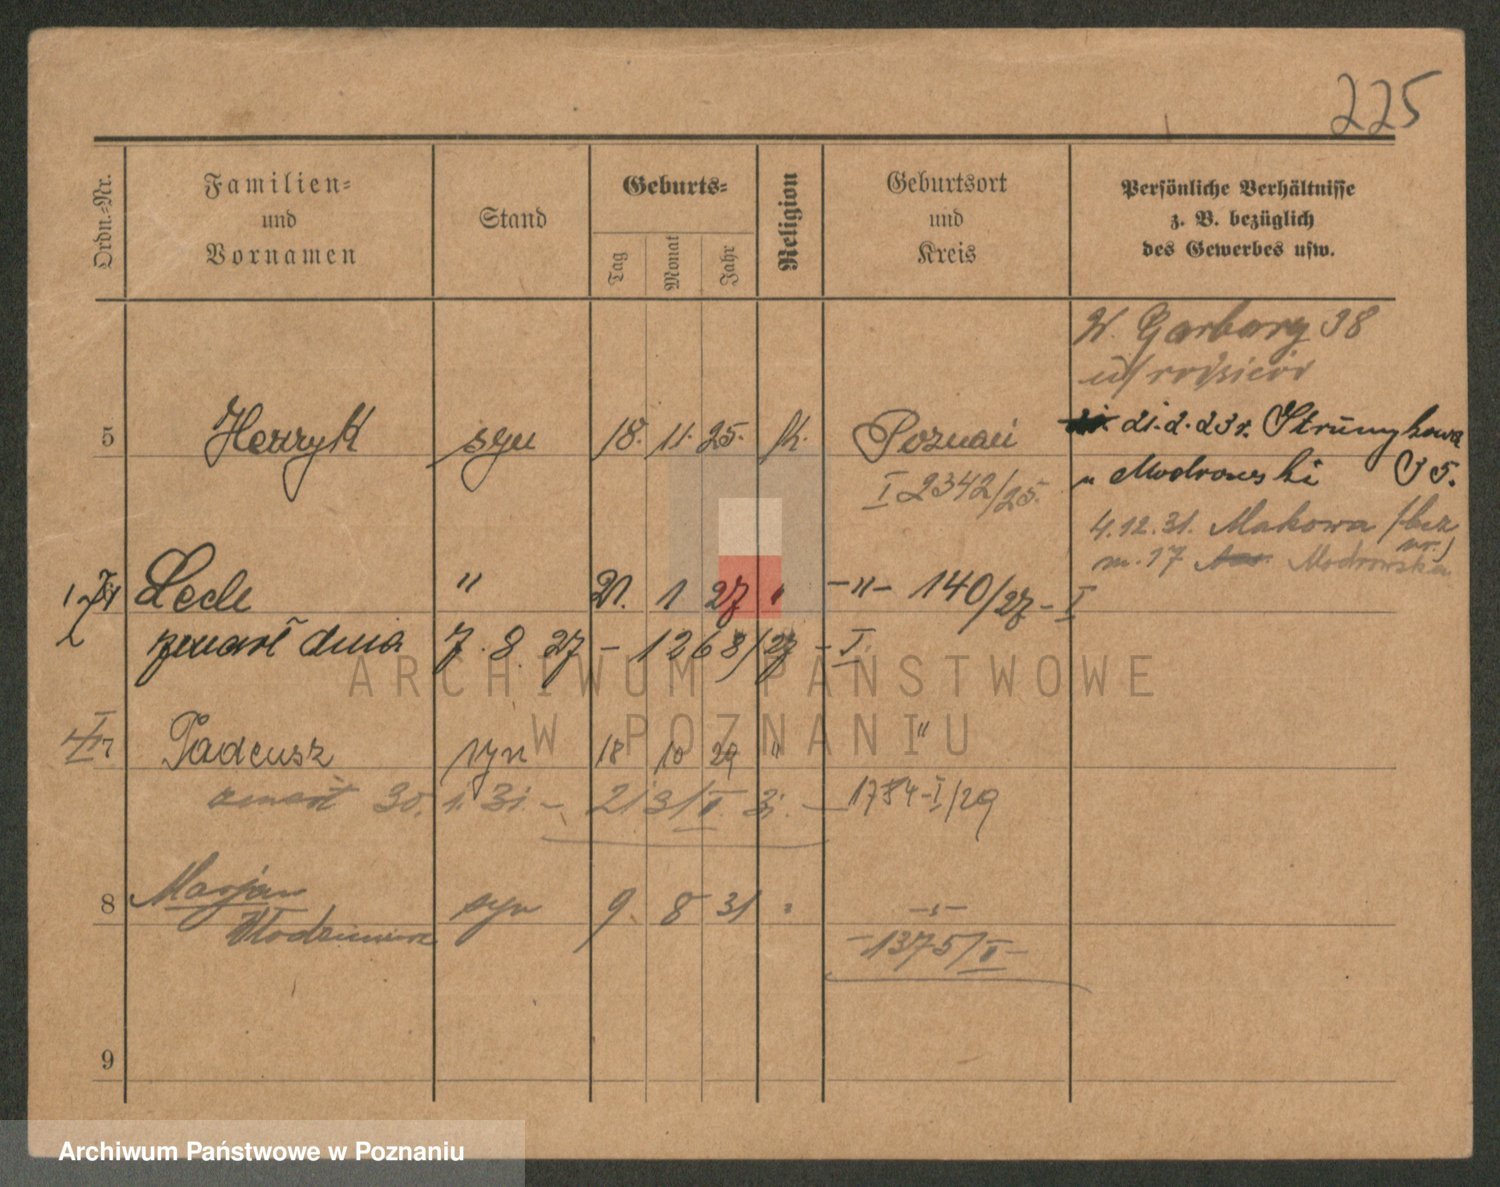 225
Ordn.-Nr.
Familien- und Vornamen
Stand
Geburts-
Tag
Monat
Jahr
Religion
Geburtsort und Kreis
Persönliche Verhältnisse z. B. bezüglich des Gewerbes usw.
W. Garbary 38
u/ rodziców
5 Henryk syn 18. 11. 25. Poznań 21.2.23 r. Strumykowa
I 2342/25. u Modrowski 35.
4.12.31. Makowa /bez nr./
m. 17 Modrowska
Lech " 21. 1 27 " -"- 140/27 - I
zmarł dnia 7. 8. 27 - 1268/27 - I.
7 Tadeusz syn 18 10 29 " "
zmarł 30. 1. 31. - 213/II. 31. - 1784-I/29
8 Marjan syn 9. 8 31 " -"-
Włodzimierz -1375/II-
9
ARCHIWUM PAŃSTWOWE
W POZNANIU
Archiwum Państwowe w Poznaniu